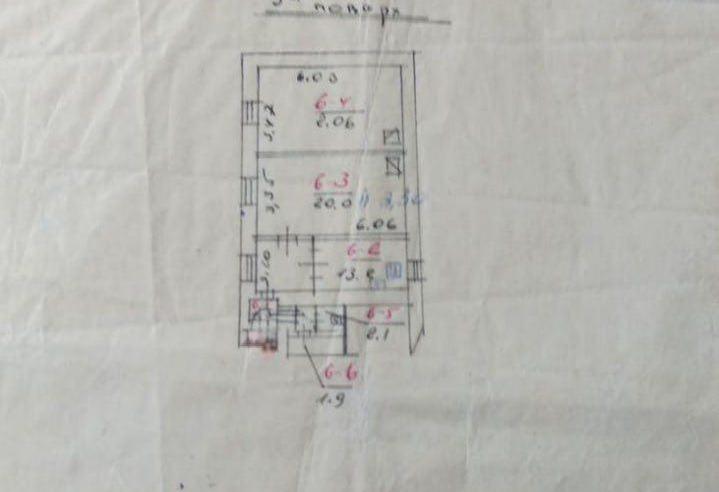 поверх
6.03
6-4
3,42
2.06
6-3
3,35
20.0
6.06
6-2
13.2
6-5
2.1
6-6
1.9